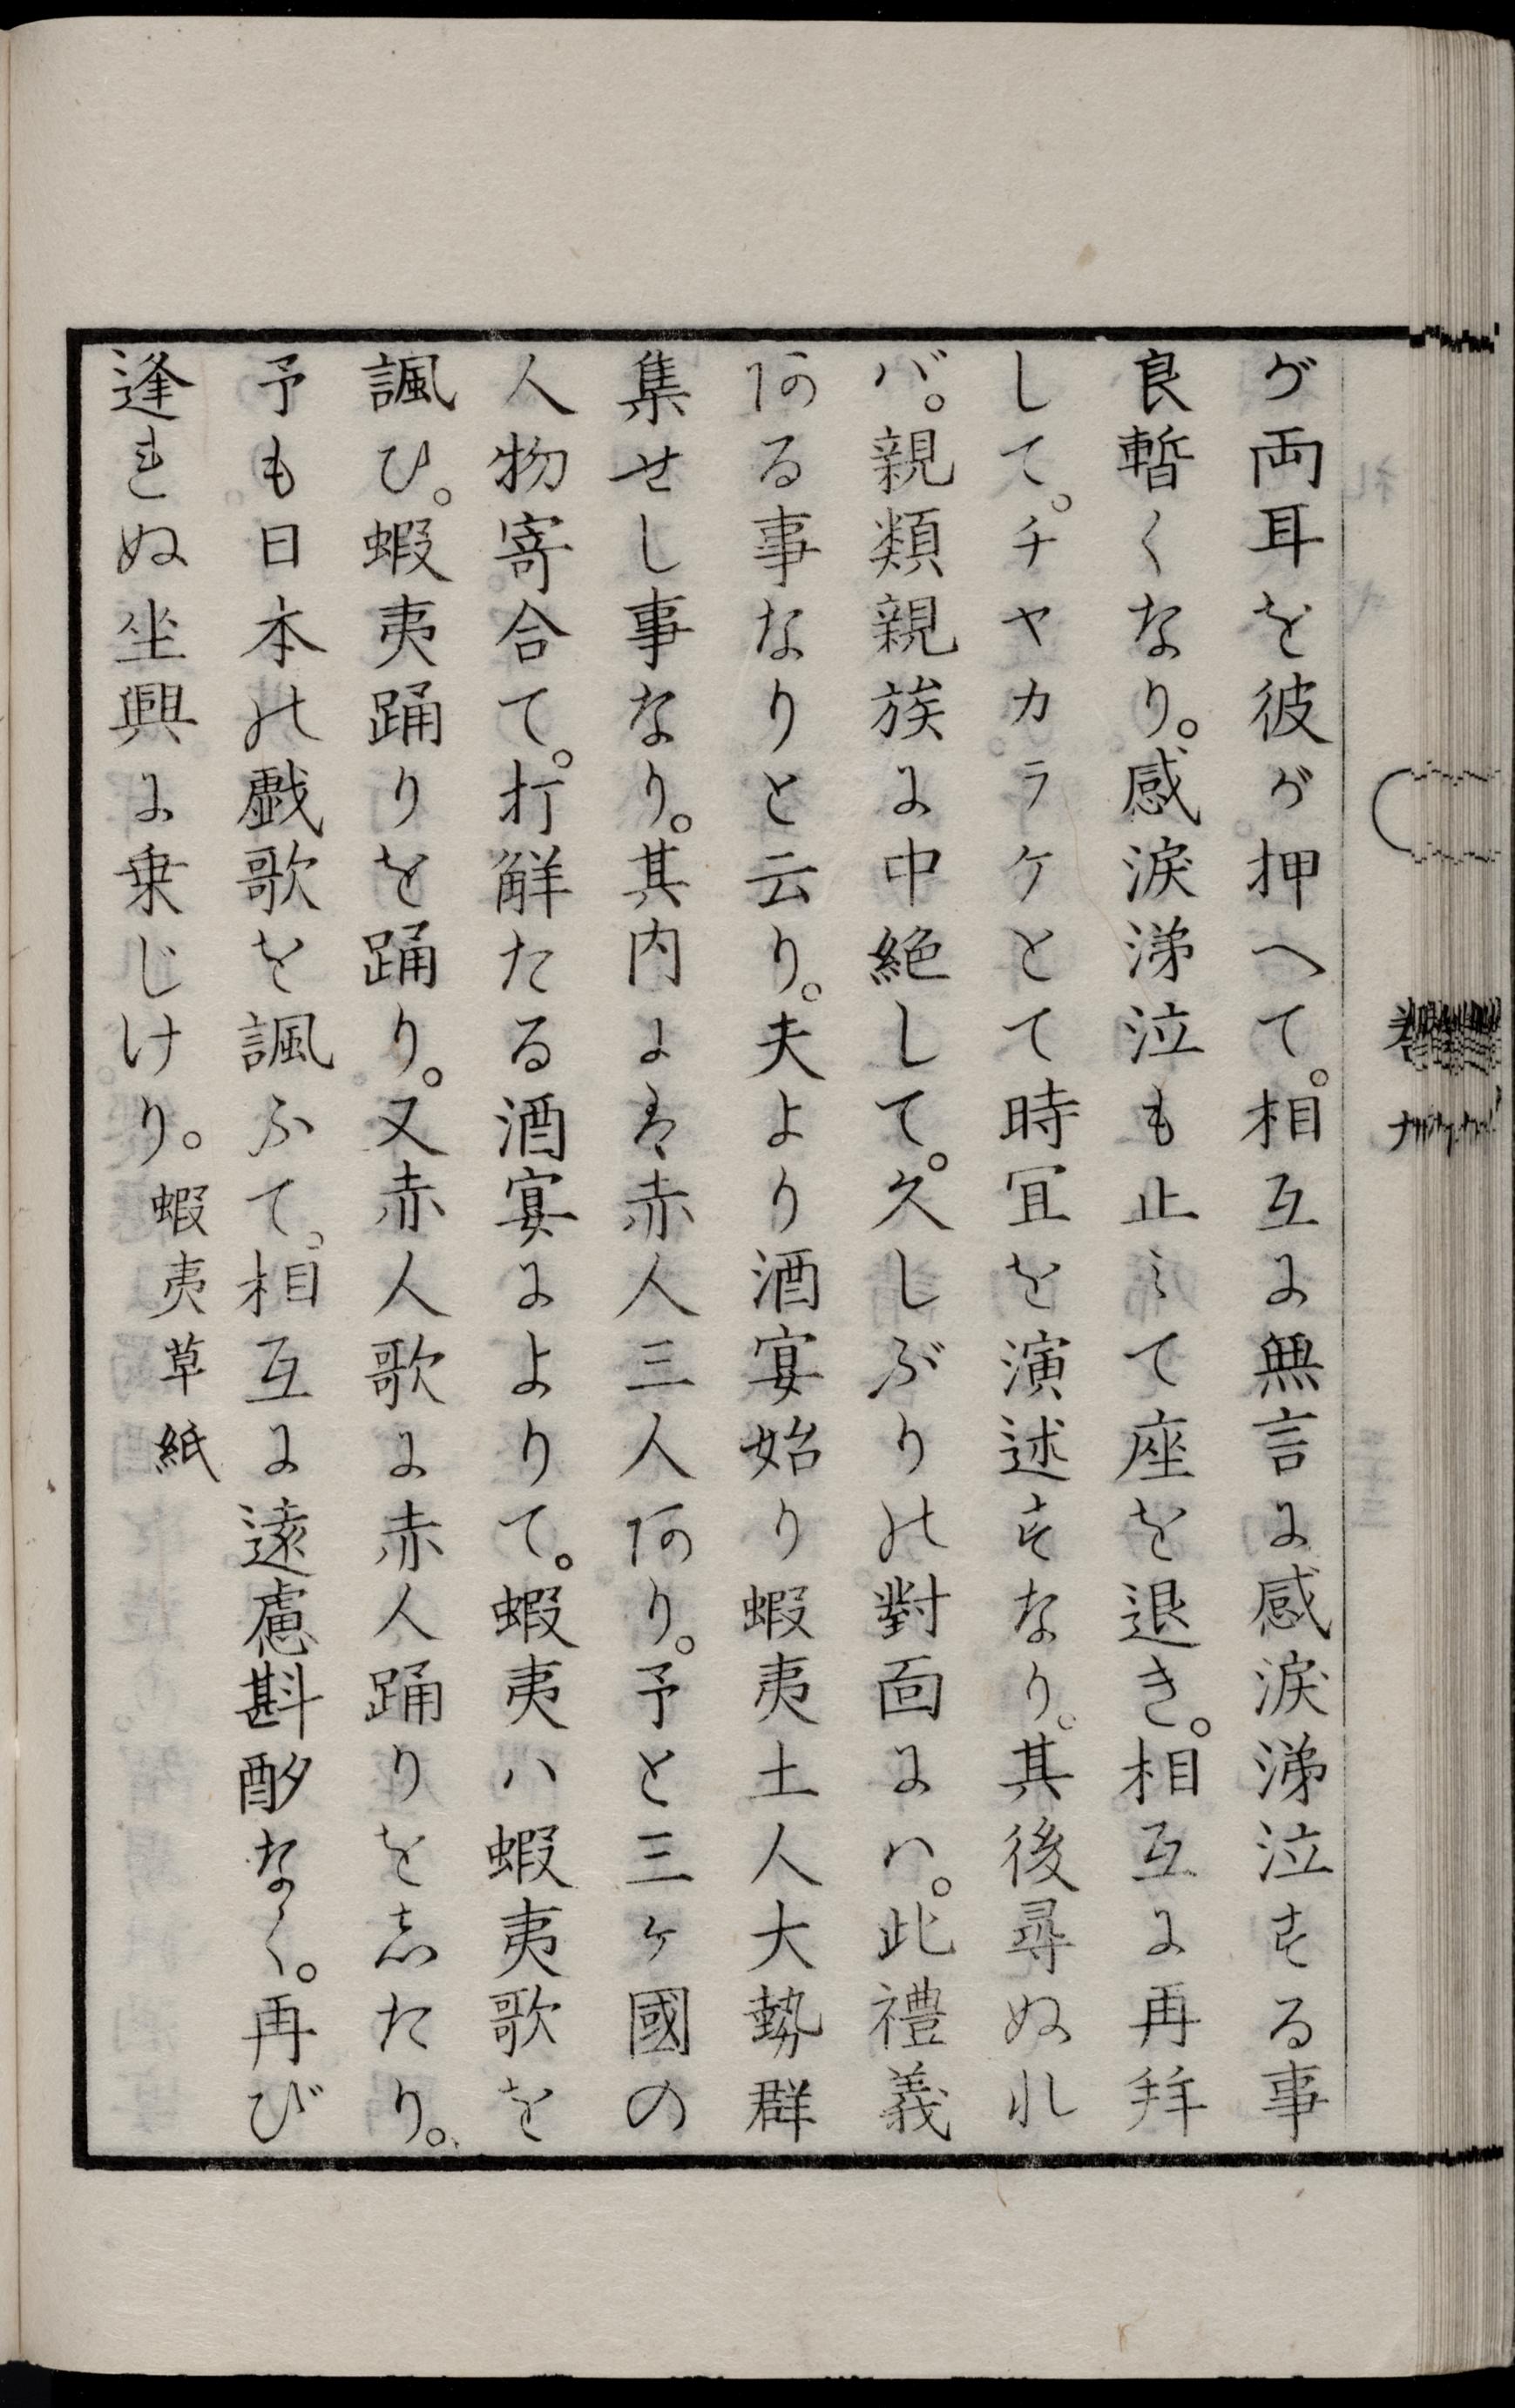 が両耳を彼が押へて。相互に無言に感涙涕泣する事
良暫くなり。感涙涕泣も止ミて座を退き。相互に再拜
して。チヤカラケとて時冝を演述すなり。其後尋ぬれ
バ。親類親族に中絶して。久しぶりの對面にハ。此禮義
ある事なりと云り。夫より酒宴始り蝦夷土人大勢群
集せし事なり。其内には赤人三人あり。予と三ヶ國の
人物寄合て。打解たる酒宴によりて。蝦夷ハ蝦夷歌を
諷ひ。蝦夷踊りを踊り。又赤人歌に赤人踊りをしたり。
予も日本の戯歌を諷ふて。相互に遠慮斟酌なく。再び
逢れぬ坐興に乗じけり。蝦夷草紙